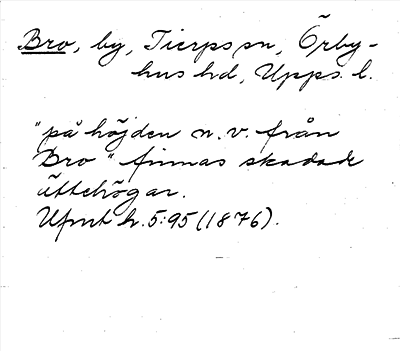 Bro, by, Tierps sn, Örby-
hus hd, Upps. l.
"på höjden n.v. från
Bro" finnas skadade
ättehögar.
Ufmt h. 5:95 (1876).